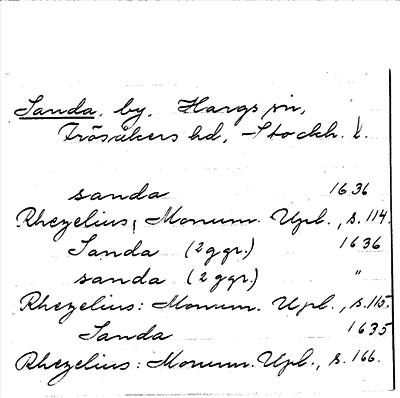 Sanda, by, Hargs sn,
Frösåkers hd, Stockh. l.
sanda 1636
Rhezelius, Monum. Upl., s. 114.
Sanda (2 ggr.) 1636
sanda (2 ggr.) "
Rhezelius: Monum. Upl., s. 115.
Sanda 1635
Rhezelius: Monum. Upl., s. 166.